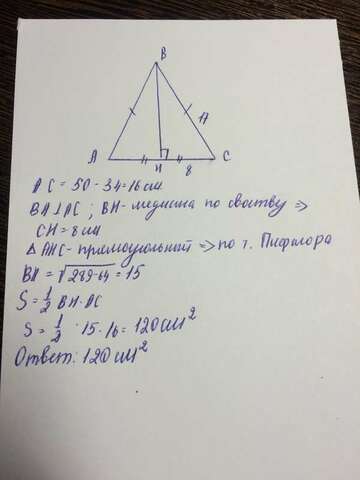 B
17
A
H
8
C
AC = 50 - 34 = 16 см
BH ⊥ AC ; BH - медиана по свойству =>
CH = 8 см
△ - прямоугольный => по т. Пифагора
BH = √289-64 = 15
S = 1/2 BH · AC
S = 1/2 · 15 · 16 = 120 см²
Ответ: 120 см²